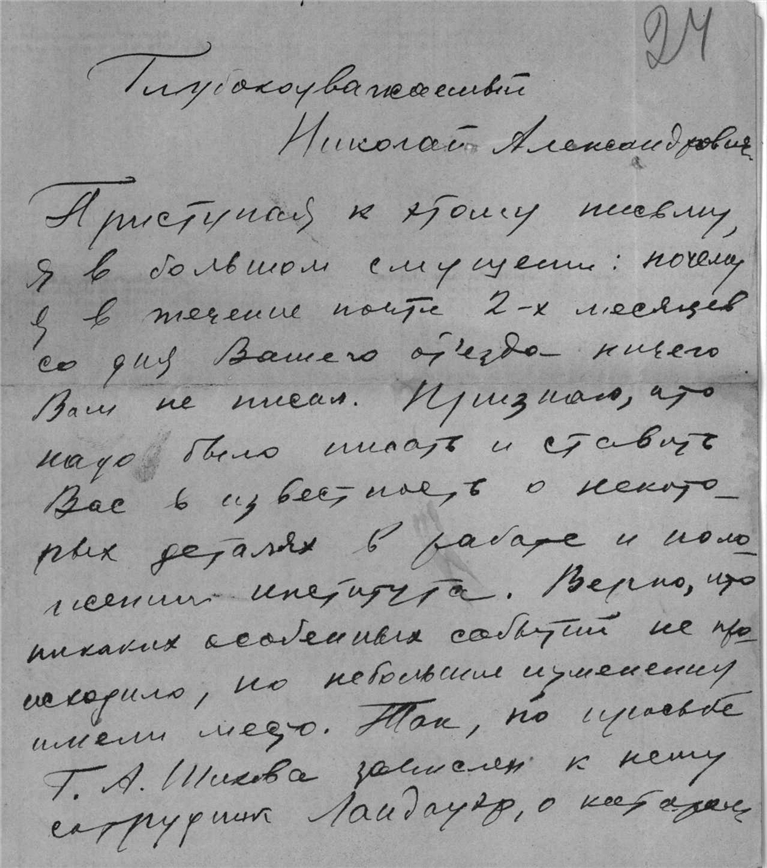 24
Глубокоуважаемый
Николай Александрович
Приступая к этому письму,
я в большом смущении: почему
я в течение почти 2-х месяцев
со дня Вашего от'езда ничего
Вам не писал. Признаю, что
надо было писать и ставить
Вас в известность о некото-
рых деталях в работе и поло-
жении института. Верно, что
никаких особенных событий не про-
исходило, но небольшие изменения
имели место. Так, по просьбе
Г. А. зачислен к нему
сотрудник Ландауэр, о котором